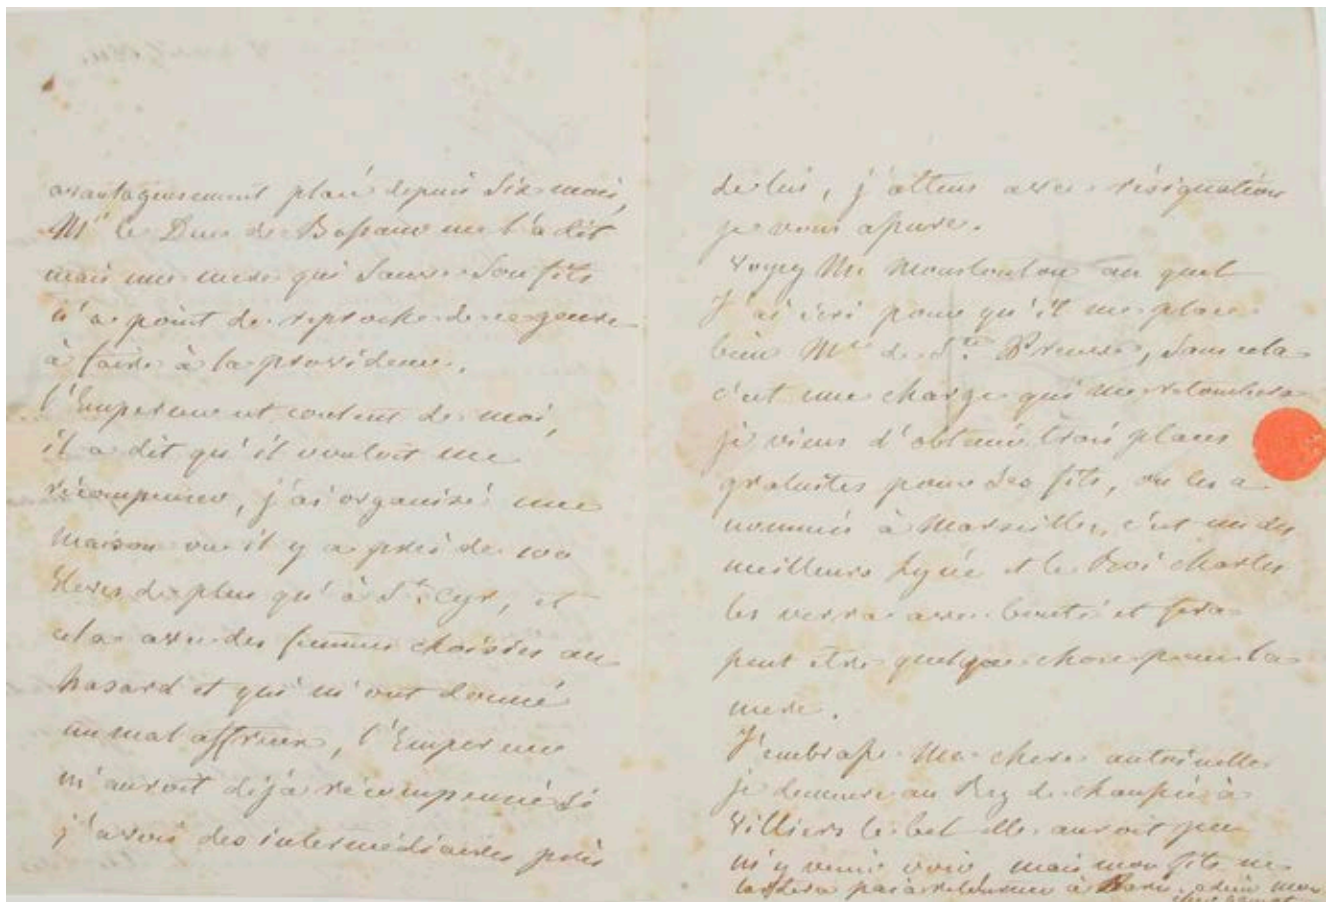 avantageusement placé depuis six mois,
Mr le Duc de Bassano me l'a dit
mais une mere qui sauve son fils
n'a point de reproche de ce genre
à faire à la providence.
l'Empereur est content de moi,
il a dit qu'il vouloit me
récompenser, j'ai organisé une
maison ou il y a près de 100
Eleves de plus qu'à St. Cyr, et
cela avec des femmes choisies au
hasard et qui m'ont donné
un mal affreux, l'Empereur
m'auroit déjà récompensé si
j'avois des intermédiaires près
de lui, j'attens avec résignation
je vous assure.
Voyez Mr au quel
J'ai écri pour qu'il me place
bien Mde de Ste , sans cela
c'est une charge qui me retombera
je viens d'obtenir trois places
gratuites pour ses fils, on les a
nommés à Marseille, c'est un des
meilleurs Lycée et le Roi charles
les verra avec bonté et fera
peut etre quelque chose pour la
mere.
J'embrasse Ma chere
je demeure au Rez de chaussée à
Villiers le bel elle auroit peu
m'y venir voir, mais mon fils ne
tardera pas à retourner à Paris. adieu mon
cher